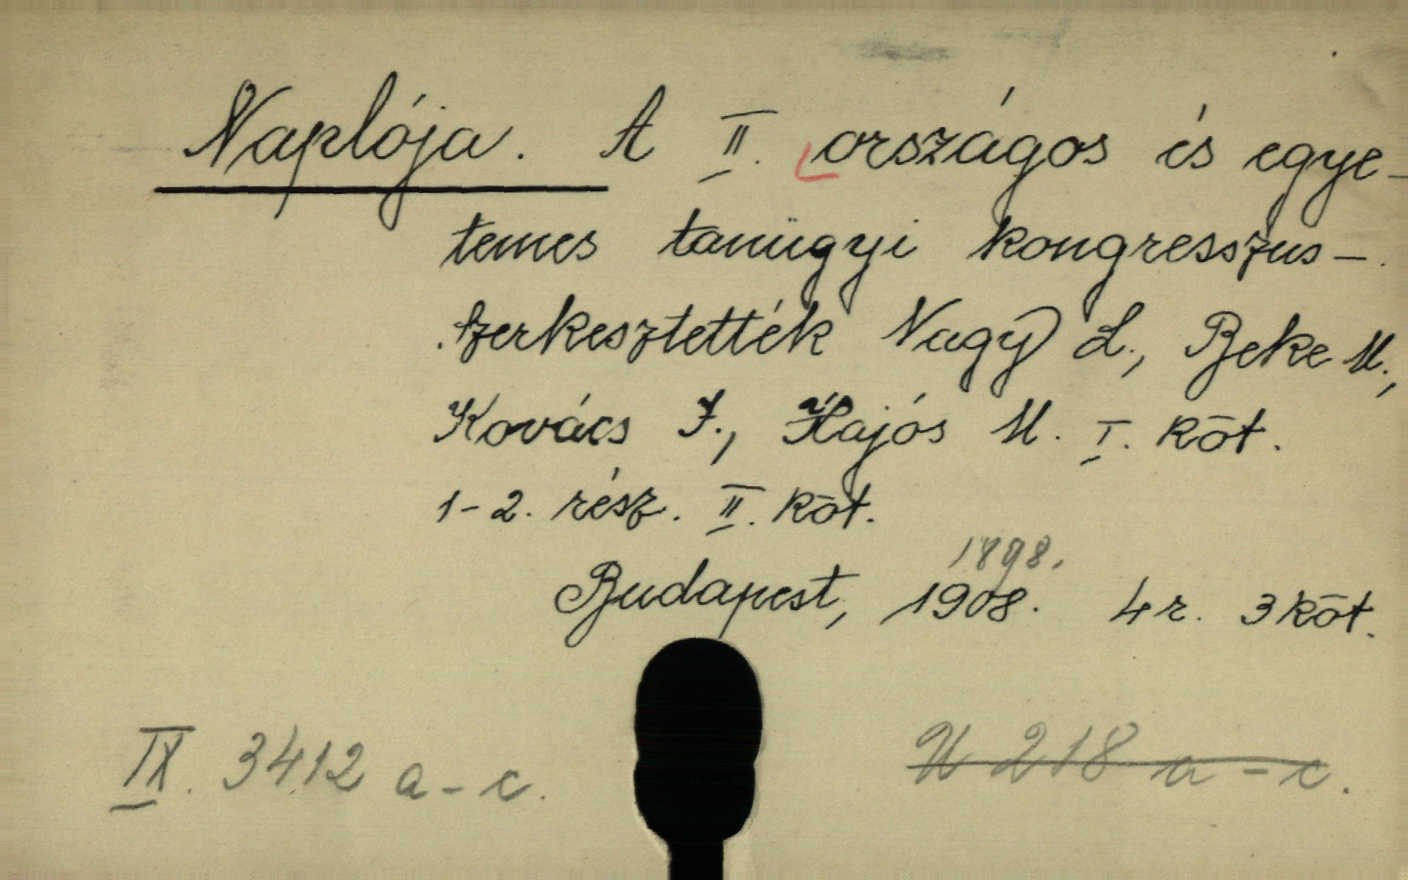 Naplója. A II. országos és egye-
temes tanügyi kongresszus-.
Szerkesztették Nagy L., Beke M.,
Kovács J., Hajós M. I. köt.
1-2. rész. II. köt.
1898.
Budapest, 1908. 4r. 3 köt.
IX. 3412 a-c.
U 218 a-c.